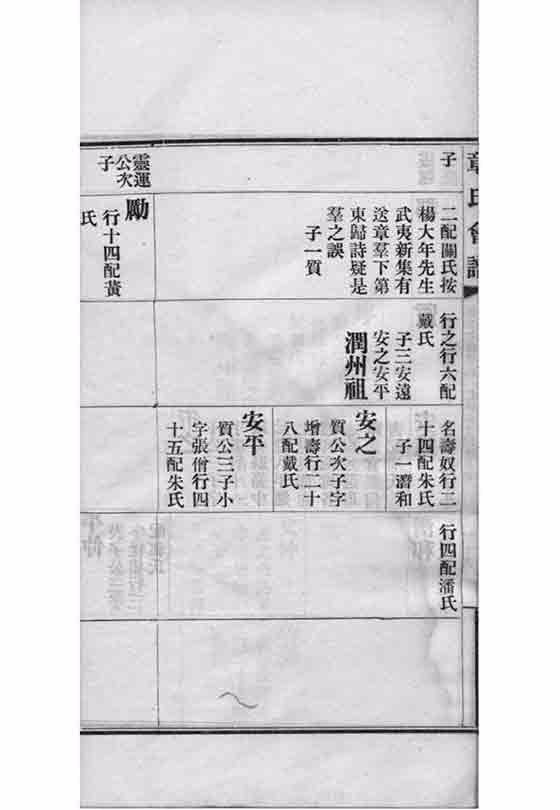 章氏會譜
子
二配關氏按
楊大年先生
武夷新集有
送章羣下第
東歸詩疑是
羣之誤
子一質
行之行六配
戴氏
子三安遠
安之安平
潤州祖
名壽奴行二
十四配朱氏
子一潛和
安之
質公次子字
增壽行二十
八配戴氏
安平
質公三子小
字張僧行四
十五配朱氏
行四配潘氏
靈運
公次
子
勵
行十四配黃
氏